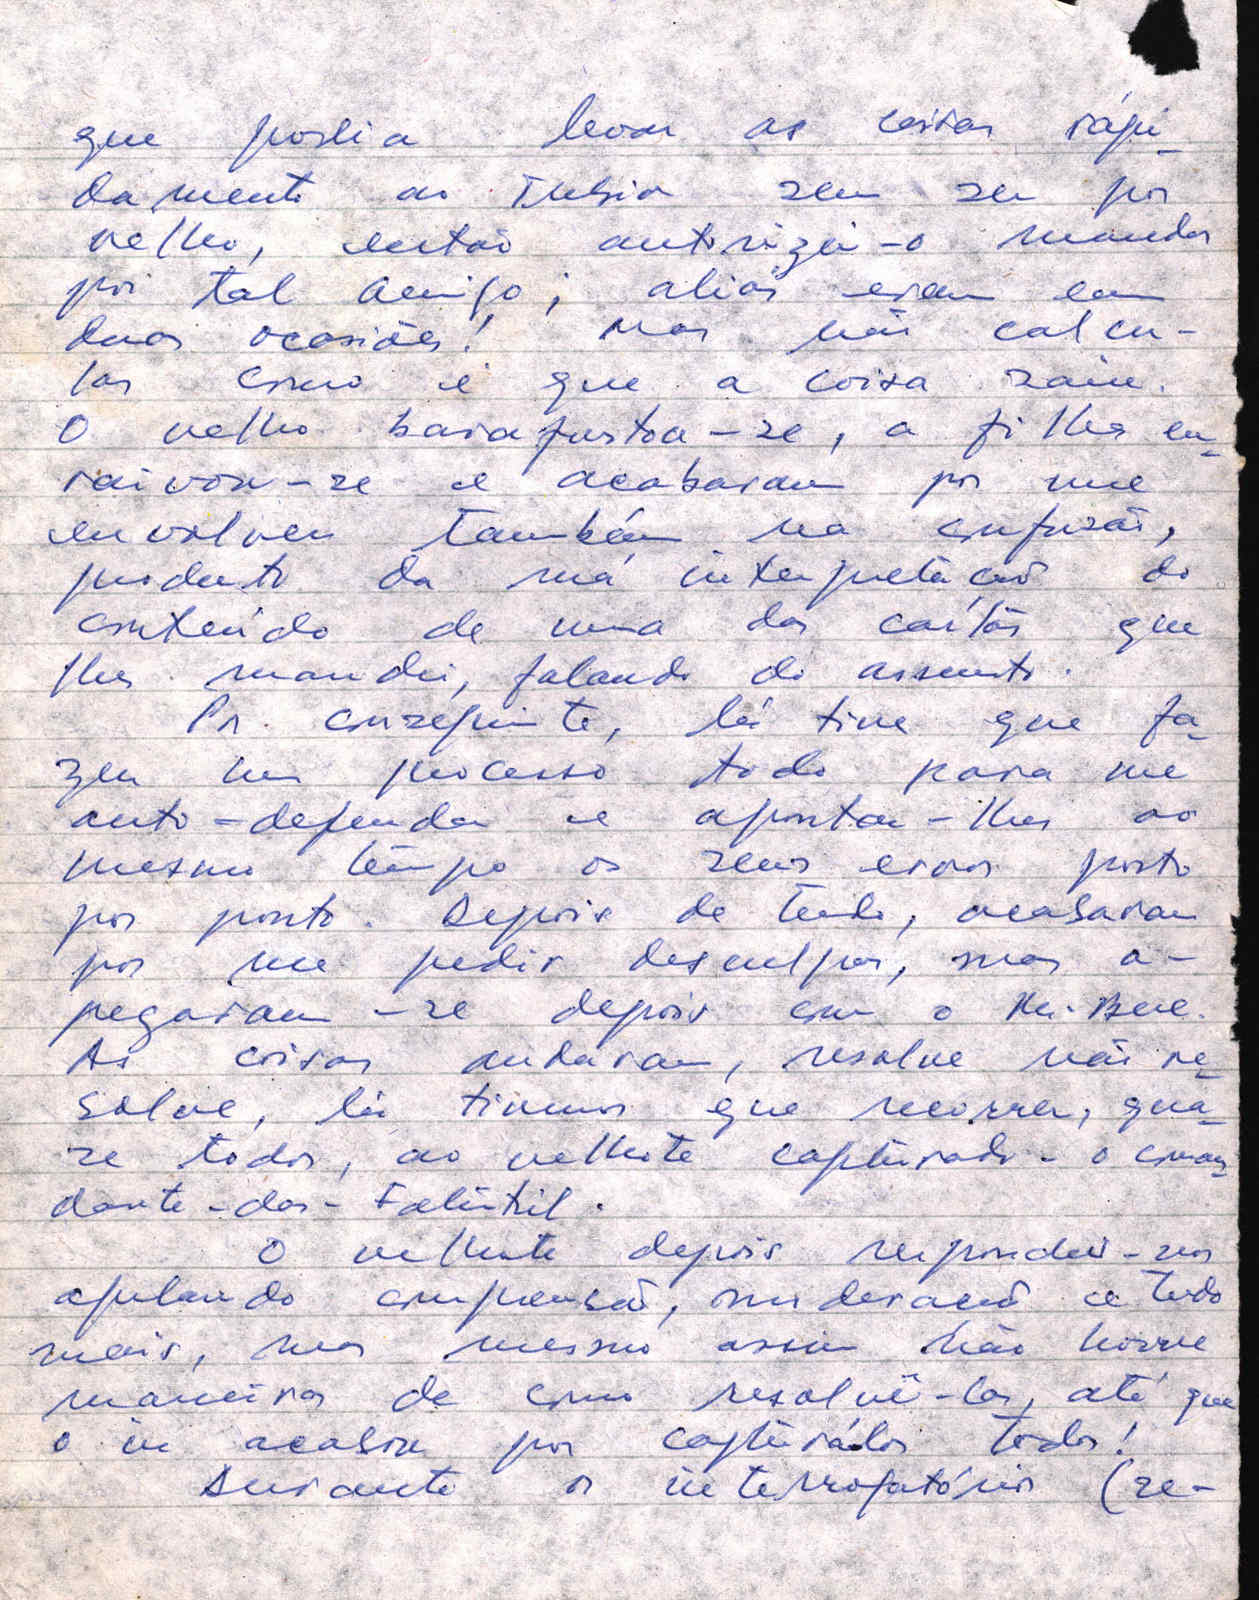 que podia levar as coisas rápi-
damente ao Tubia sem ser por
velho, então autorizei-o mandar
por tal amigo; aliás eram em
duas ocasiões! Mas não calcu-
las como é que a coisa saiu.
O velho barafustou-se, a filha en-
raivou-se e acabaram por me
envolver também na confusão,
produto da má interpretação do
conteúdo de uma das cartas que
lhes mandei, falando do assunto.
Por conseguinte, lá tive que fa-
zer um processo todo para me
auto-defender e apontar-lhes ao
mesmo tempo os seus erros ponto
por ponto. Depois de tudo, acabaram
por me pedir desculpas, mas a-
pegaram-se depois com o
As coisas andaram, resolve não re-
solve, lá tivemos que recorrer, qua-
se todos, ao velhote capturado - o coman-
dante-das-Falintil.
O velhote depois respondeu-nos
apelando compreensão, moderação e tudo
mais, mas mesmo assim não houve
maneiras de como resolvê-los, até que
o in acabou por capturá-los todos!
Durante os interrogatórios (re-